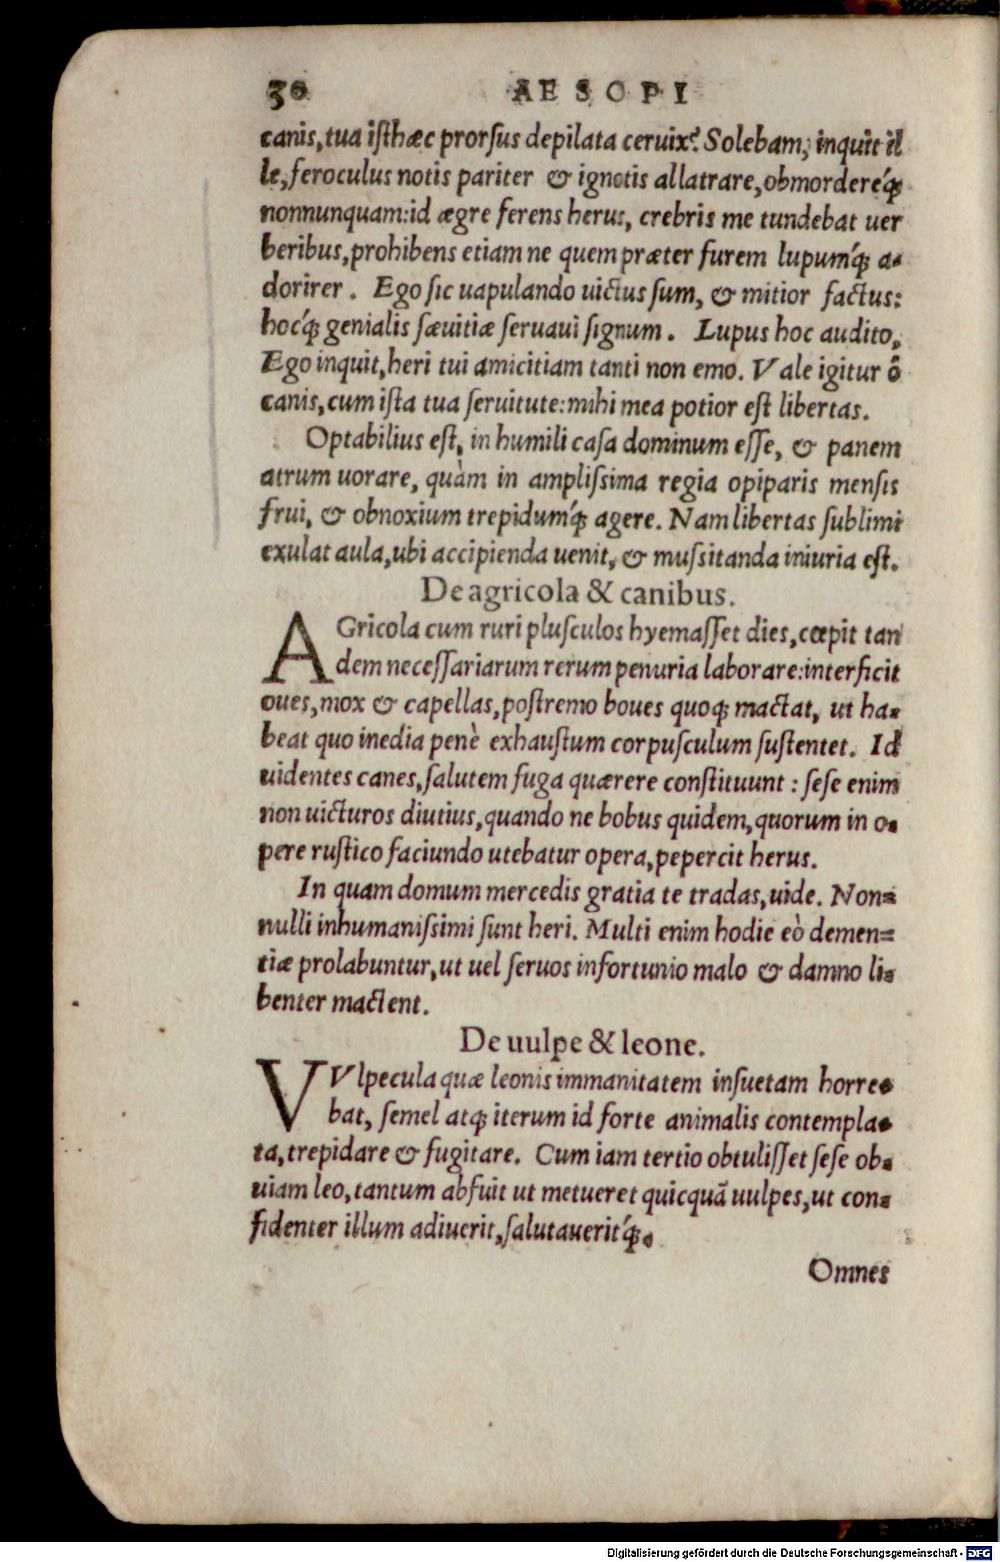 30 AESOPI
canis, tua iſthæc prorſus depilata ceruix? Solebam, inquit il
le, feroculus notis pariter & ignotis allatrare, obmordereq́;
nonnunquam: id ægre ferens herus, crebris me tundebat uer
beribus, prohibens etiam ne quem præter furem lupumq́; a-
dorirer. Ego ſic uapulando uictus ſum, & mitior factus:
hocq́; genialis ſæuitiæ ſeruaui ſignum. Lupus hoc audito,
Ego inquit, heri tui amicitiam tanti non emo. Vale igitur ô
canis, cum iſta tua ſeruitute: mihi mea potior eſt libertas.
Optabilius eſt, in humili caſa dominum eſſe, & panem
atrum uorare, quàm in ampliſsima regia opiparis menſis
frui, & obnoxium trepidumq́; agere. Nam libertas ſublimi
exulat aula, ubi accipienda uenit, & muſsitanda iniuria eſt.
De agricola & canibus.
AGricola cum ruri pluſculos hyemaſſet dies, cœpit tan
dem neceſſariarum rerum penuria laborare: interficit
oues, mox & capellas, poſtremo boues quoq; mactat, ut ha-
beat quo inedia penè exhauſtum corpuſculum ſuſtentet. Id
uidentes canes, ſalutem fuga quærere conſtituunt: ſeſe enim
non uicturos diutius, quando ne bobus quidem, quorum in o-
pere ruſtico faciundo utebatur opera, pepercit herus.
In quam domum mercedis gratia te tradas, uide. Non=
nulli inhumaniſsimi ſunt heri. Multi enim hodie eò demen=
tiæ prolabuntur, ut uel ſeruos infortunio malo & damno li-
benter mactent.
De uulpe & leone.
VVlpecula quæ leonis immanitatem inſuetam horre-
bat, ſemel atq; iterum id forte animalis contempla-
ta, trepidare & fugitare. Cum iam tertio obtuliſſet ſeſe ob-
uiam leo, tantum abfuit ut metueret quicquã uulpes, ut con-
fidenter illum adiuerit, ſalutaueritq́;.
Omnes
Digitalisierung gefördert durch die Deutsche Forschungsgemeinschaft - DFG